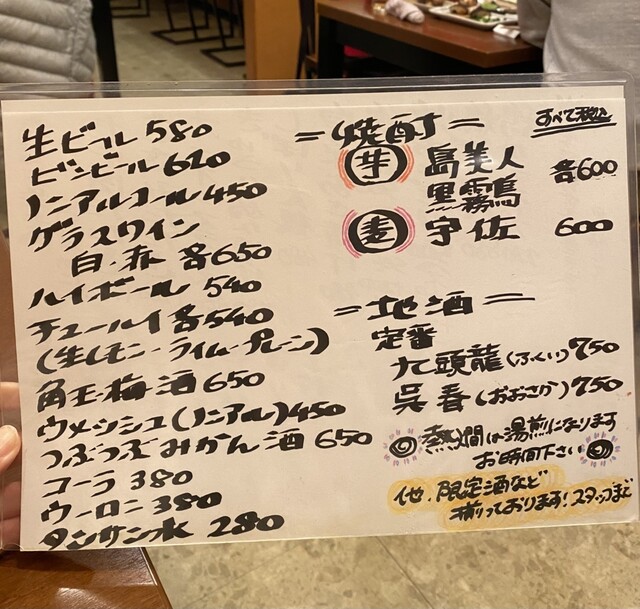 生ビール 580
ビンビール 620
ノンアルコール 450
グラスワイン
白・赤 各650
ハイボール 540
チューハイ 各540
(生レモン・ライム・プレーン)
角玉梅酒 650
ウメッシュ(ノンアル) 450
つぶつぶみかん酒 650
コーラ 380
ウーロン 380
タンサン水 280
すべて税込
=焼酎=
芋 島美人 各600
黒霧島
麦 宇佐 600
=地酒=
定番
九頭龍(ふくい) 750
呉春(おおさか) 750
熱燗は湯煎になります
お時間下さい
他、限定酒など
揃っております!スタッフまで